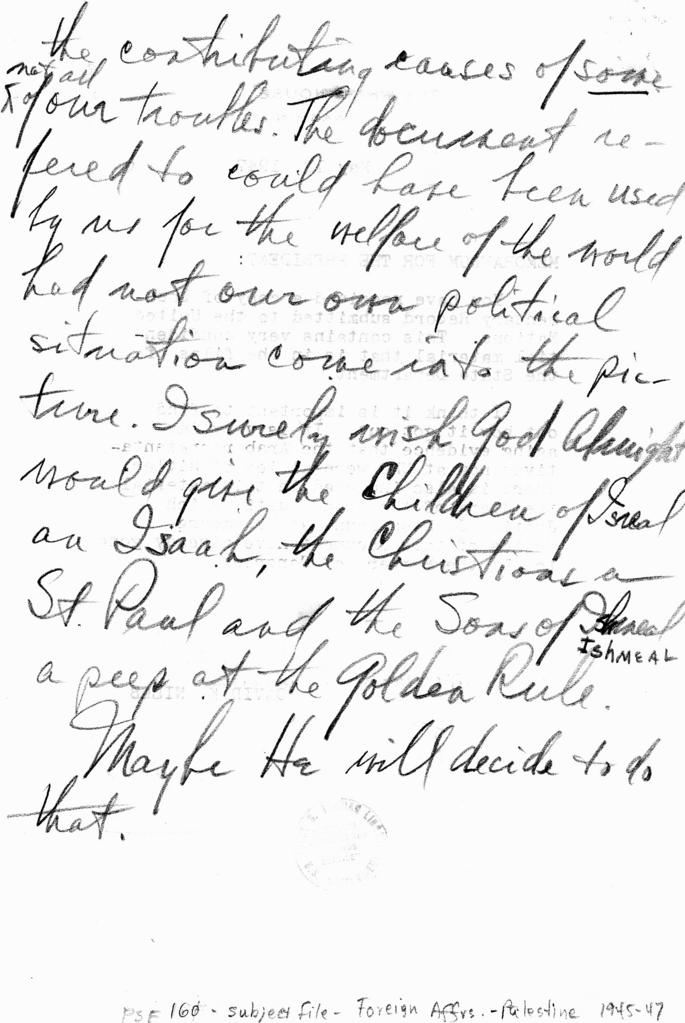 the contributing causes of some
not all
& of our troubles. The document re-
fered to could have been used
by us for the welfare of the world
had not our own political
situation come into the pic-
ture. I surely wish God Almight
would give the Children of Isreal
an Isaah, the Christians a
St. Paul and the Sons of Ishmeal
ISHMEAL
a peep at the Golden Rule.
Maybe He will decide to do
that.
PSF 160 - Subject File - Foreign Affrs. - Palestine 1945-47